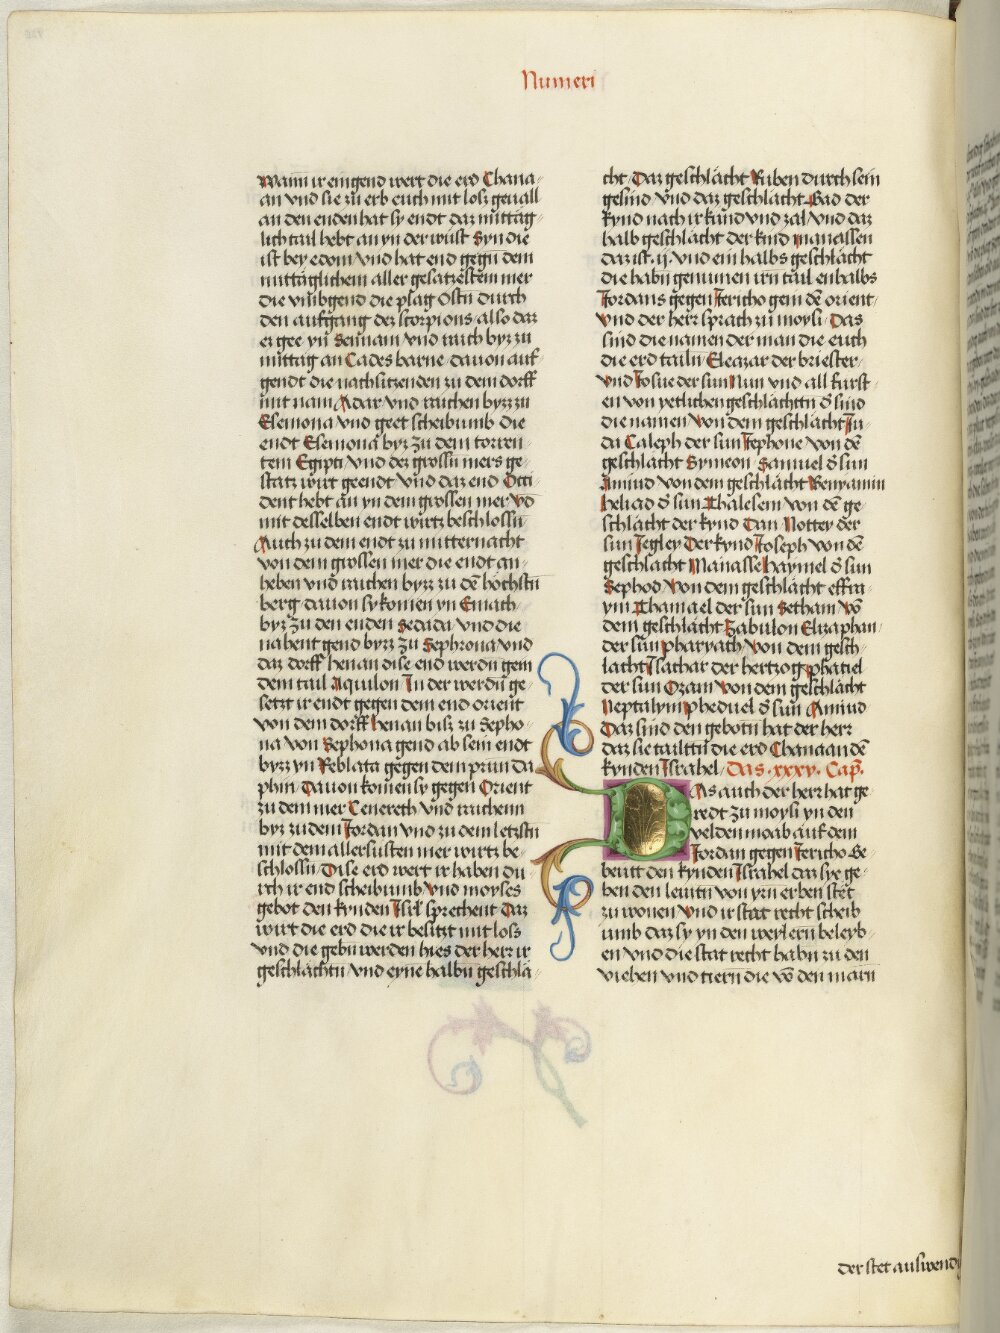 Numeri
Wann ir eingend wert die erd Chana-
an vnd sie zu erb euch mit losz geuall
an den enden hat sy endt daz mittäg-
lich tail hebt an yn der wüst Syn die
ist bey edom vnd hat end gegen dem
mittäglichem aller gesalzestem mer
die vmbgend die plag Ostn durch
den aufgang des scorpions also daz
er gee yn Sennam vnd raich bysz zu
mittag an Cades barne dauon auf-
gendt die nachsitzenden zu dem dorff
mit nam Adar vnd raichen bysz zu
Esemona vnd geet scheibumb die
endt Esemona bysz zu dem torren-
tem Egipti vnd des grossn mers ge-
statz wirt geendt vnd daz end Occi-
dent hebt an yn dem grossen mer vnd
mit desselben endt wirtz beschlossn
Auch zu dem endt zu mitternacht
von dem grossen mer die endt an-
heben vnd raichen bysz zu dē höchstn
berg dauon sy komen yn Emach
bysz zu den enden Sedada vnd die
nabent gend bysz zu Sephrona vnd
daz dorff henan dise end werdn gem
dem tail Aquilon In der werdn ge-
setzt ir endt gegen dem end orient
von dem dorff henan bisz zu Sepho-
na von Sephona gend ab sein endt
bysz yn Reblata gegen dem prun da
phin Dauon komen sy gegen Orient
zu dem mer Cenereth vnd raichenn
bysz zu dem Jordan vnd zu dem letzstn
mit dem allersusten mer wirtz be-
schlossn Dise erd wert ir haben du
rch ir end scheibumb vnd moyses
gebot den kynden Isrl sprechent Daz
wirt die erd die ir besitzt mit losz
vnd die gebn werden hies der herr ir
geschlächtn vnd eyne halbn geschlä-
cht Daz geschlächt Ruben durch sein
gesind vnd daz geschlächt Gad der
kynd nach ir kund vnd zal vnd daz
halb geschlächt der kind manassen
daz ist ij vnd ein halbs geschlächt
die habn genumen irn tail enhalbs
Jordans gegen Jericho gem dē orient
Vnd der herr sprach zu moysi Das
sind die namen der man die euch
die erd tailn Eleazar der briester
vnd Josue der sun Nun vnd all furst
en von yetlichen geschlächttn d̄ sind
die namen Von dem geschlächt Ju-
da Caleph der sun Jephone von dē
geschlächt Symeon Samuel d̄ sun
Amiud von dem geschlächt Benyamin
heliad d̄ sun Chalelem von dē ge
schlächt der kynd Dan Nottey der
sun Jegley Der kynd Joseph von dē
geschlacht Manasse haymel d̄ sun
Sephod Von dem geschlächt effra
ym Chamael der sun Setham vō
dem geschlächt Zabulon Elizaphan
der sun pharyath von dem gesch-
lächt Isachar der hertzog phatiel
der sun Ozam von dem geschlächt
Neptalym pheduel d̄ sun Amiud
Daz sind den gebotn hat der herr
daz sie tailttn die erd Chanaan dē
kynden Israhel Das xxxv Cap̄
Das auch der herr hat ge
redt zu moysi yn den
velden moab auf dem
Jordan gegen Jericho Ge
beutt den kynden Israhel daz sye ge-
ben den leuitn von yrn erben stet
zu wonen vnd ir stat recht scheib
umb daz sy yn den weylern beleyb-
en vnd die stat recht habn zu den
viehen vnd tiern die vō den maurn
der stet auswendig